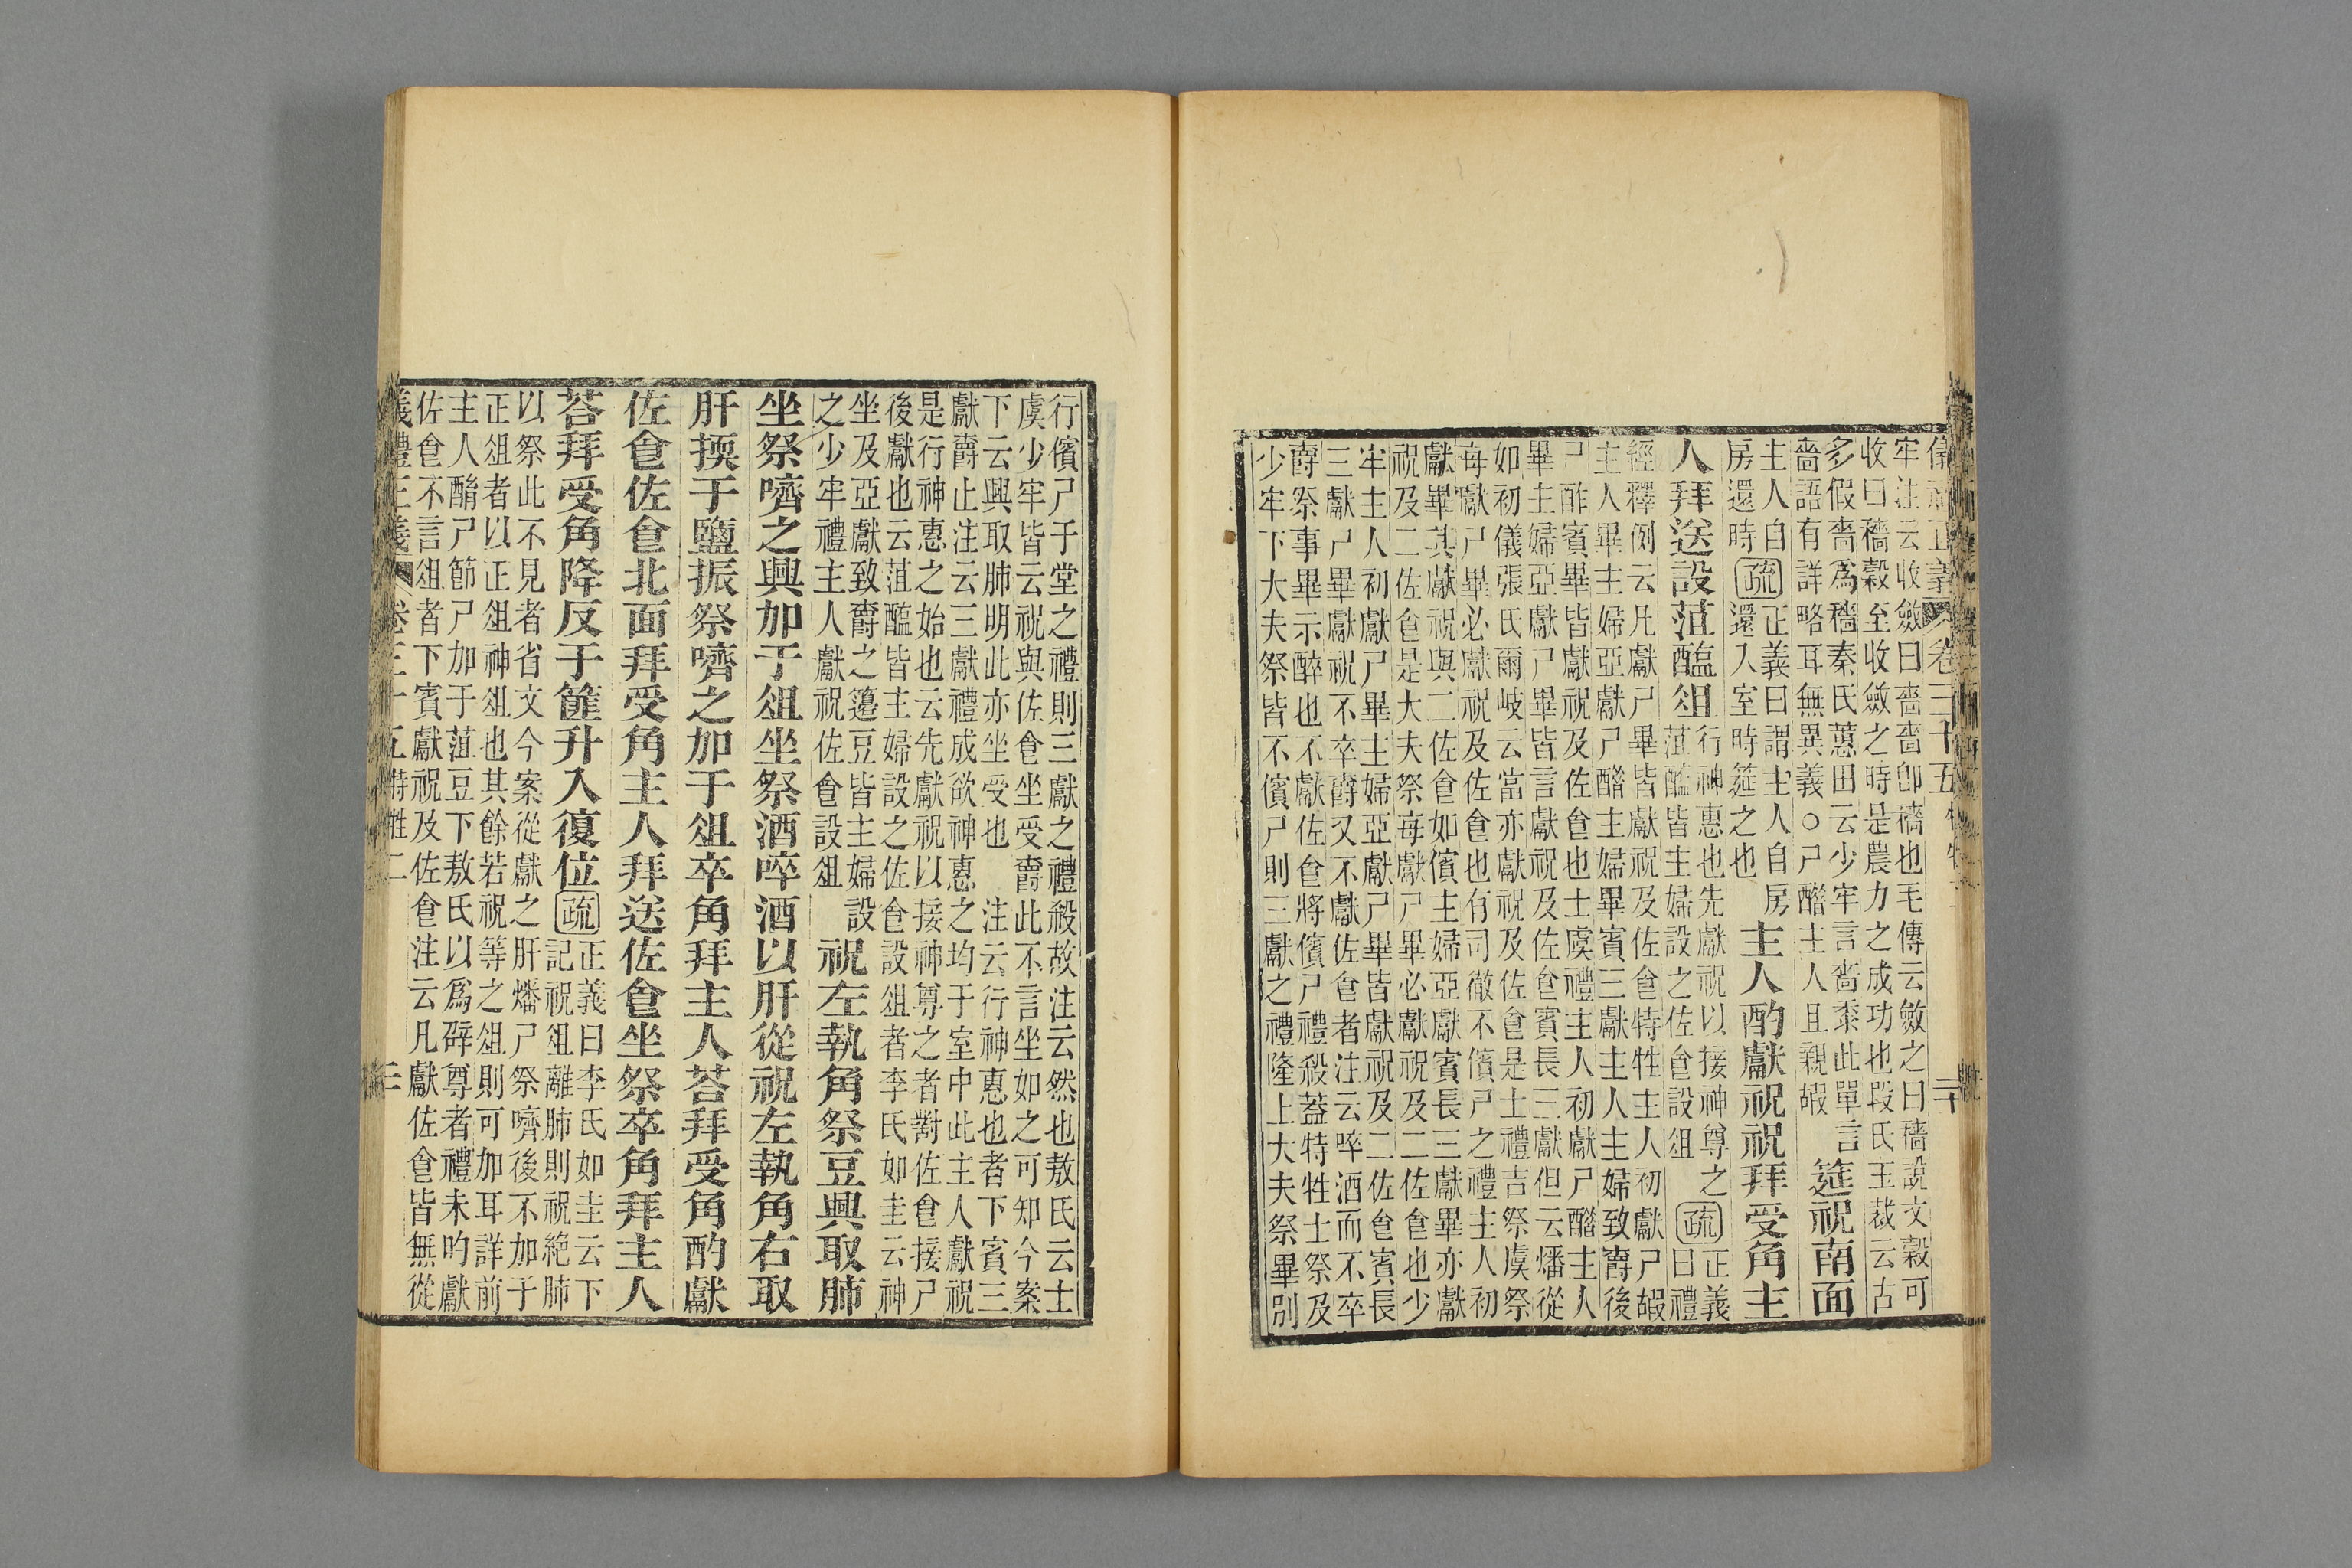 儀禮正義 卷三十五 特牲二 二十
牢注云收斂曰嗇嗇卽穡也毛傳云斂之曰穡說文穀可
收曰穡穀至收斂之時是農力之成功也段氏玉裁云古
多假嗇爲穡秦氏蕙田云少牢言嗇黍此單言
嗇語有詳略耳無異義○尸醋主人且親嘏
筵祝南面
主人自
房還時
疏
正義曰謂主人自房
還入室時筵之也
主人酌獻祝祝拜受角主
人拜送設菹醢俎
行神惠也先獻祝以接神尊之
菹醢皆主婦設之佐食設俎
疏
正義
曰禮
經釋例云凡獻尸畢皆獻祝及佐食特牲主人初獻尸嘏
主人畢主婦亞獻尸醋主婦畢賓三獻主人主婦致爵後
尸酢賓畢皆獻祝及佐食也士虞禮主人初獻尸醋主人
畢主婦亞獻尸畢皆言獻祝及佐食賓長三獻但云燔從
如初儀張氏爾岐云當亦獻祝及佐食是士禮吉祭虞祭
每獻尸畢必獻祝及佐食也有司徹不儐尸之禮主人初
獻畢其獻祝與二佐食如儐主婦亞獻賓長三獻畢亦獻
祝及二佐食是大夫祭每獻尸畢必獻祝及二佐食也少
牢主人初獻尸畢主婦亞獻尸畢皆獻祝及二佐食賓長
三獻尸畢獻祝不卒爵又不獻佐食者注云啐酒而不卒
爵祭事畢示醉也不獻佐食將儐尸禮殺蓋特牲士祭及
少牢下大夫祭皆不儐尸則三獻之禮隆上大夫祭畢別
行儐尸于堂之禮則三獻之禮殺故注云然也敖氏云士
虞少牢皆云祝與佐食坐受爵此不言坐如之可知今案
下云興取肺明此亦坐受也 注云行神惠也者下賓三
獻爵止注云三獻禮成欲神惠之均于室中此主人獻祝
是行神惠之始也云先獻祝以接神尊之者對佐食接尸
後獻也云菹醢皆主婦設之佐食設俎者李氏如圭云神
坐及亞獻致爵之籩豆皆主婦設
之少牢禮主人獻祝佐食設俎
祝左執角祭豆興取肺
坐祭嚌之興加于俎坐祭酒啐酒以肝從祝左執角右取
肝擩于鹽振祭嚌之加于俎卒角拜主人荅拜受角酌獻
佐食佐食北面拜受角主人拜送佐食坐祭卒角拜主人
荅拜受角降反于篚升入復位
疏
正義曰李氏如圭云下
記祝俎離肺則祝絶肺
以祭此不見者省文今案從獻之肝燔尸祭嚌後不加于
正俎者以正俎神俎也其餘若祝等之俎則可加耳詳前
主人酳尸節尸加于菹豆下敖氏以爲辟尊者禮未昀獻
佐食不言俎者下賓獻祝及佐食注云凡獻佐食皆無從
儀禮正義 卷三十五 特牲二